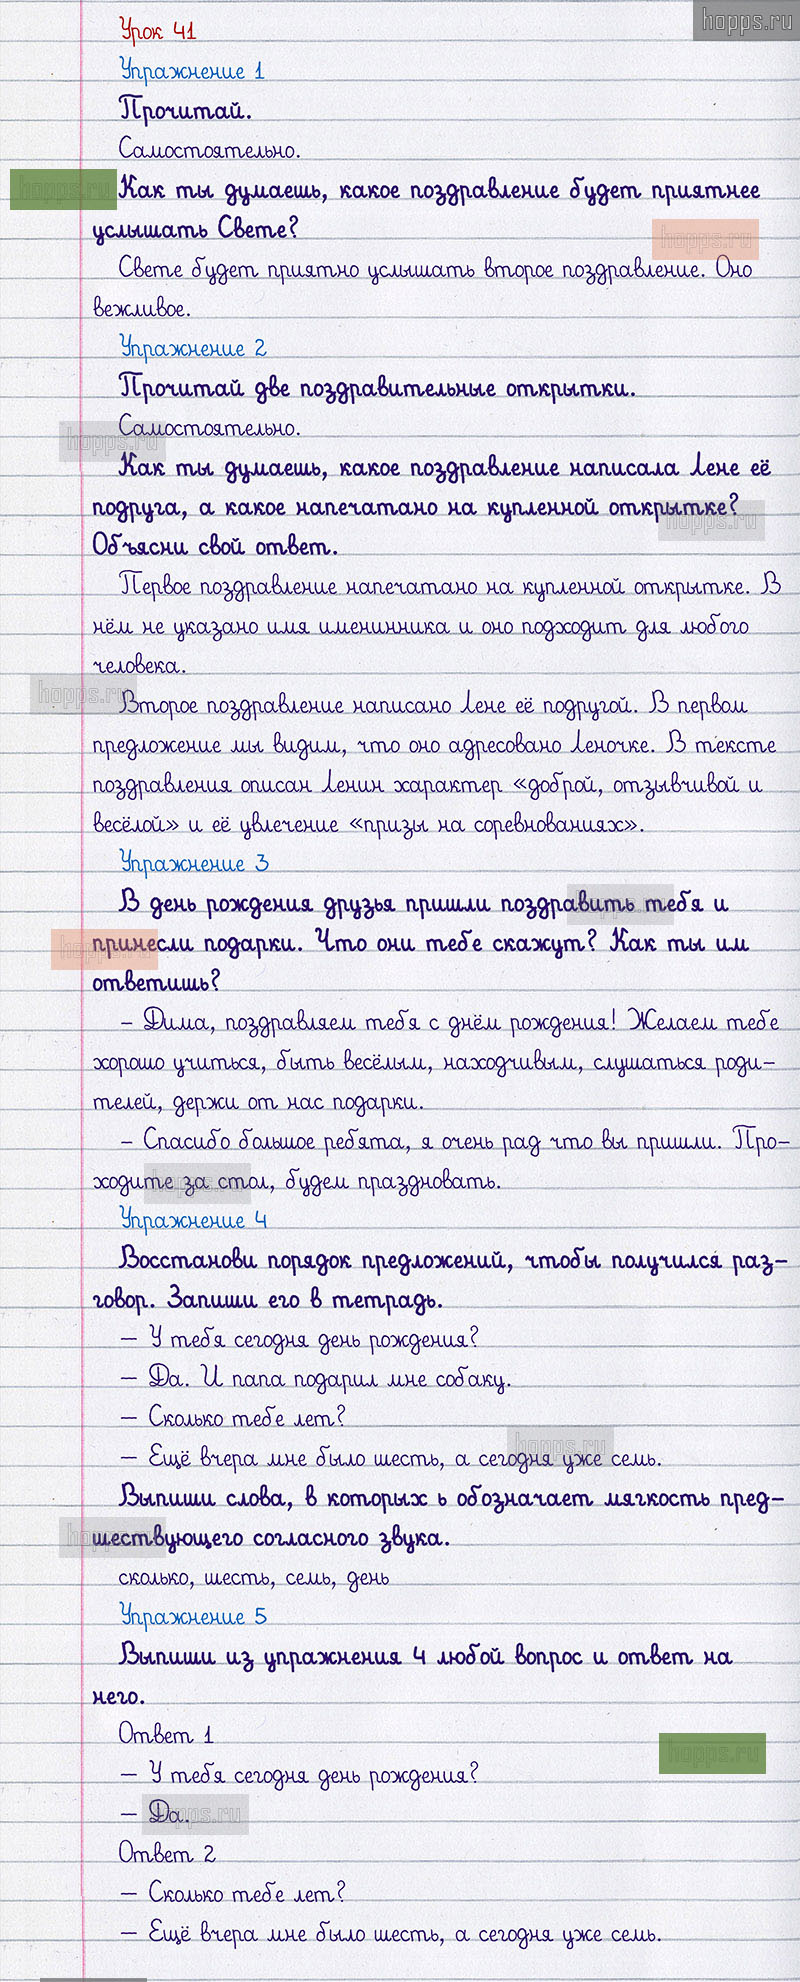 hopps.ru
Урок 41
Упражнение 1
Прочитай.
Самостоятельно.
hopps.ru
Как ты думаешь, какое поздравление будет приятнее
услышать Свете?
hopps.ru
Свете будет приятно услышать второе поздравление. Оно
вежливое.
Упражнение 2
Прочитай две поздравительные открытки.
Самостоятельно.
hopps.ru
Как ты думаешь, какое поздравление написала Лене её
подруга, а какое напечатано на купленной открытке?
hopps.ru
Объясни свой ответ.
Первое поздравление напечатано на купленной открытке. В
нём не указано имя именинника и оно подходит для любого
человека.
hopps.ru
Второе поздравление написано Лене её подругой. В первом
предложение мы видим, что оно адресовано Леночке. В тексте
поздравления описан Ленин характер «доброй, отзывчивой и
весёлой» и её увлечение «призы на соревнованиях».
Упражнение 3
В день рождения друзья пришли поздравить тебя и
hopps.ru
принесли подарки. Что они тебе скажут? Как ты им
hopps.ru
ответишь?
– Дима, поздравляем тебя с днём рождения! Желаем тебе
хорошо учиться, быть весёлым, находчивым, слушаться роди-
телей, держи от нас подарки.
– Спасибо большое ребята, я очень рад что вы пришли. Про-
ходите за стол, будем праздновать.
hopps.ru
Упражнение 4
Восстанови порядок предложений, чтобы получился раз-
говор. Запиши его в тетрадь.
– У тебя сегодня день рождения?
– Да. И папа подарил мне собаку.
– Сколько тебе лет?
– Ещё вчера мне было шесть, а сегодня уже семь.
hopps.ru
Выпиши слова, в которых ь обозначает мягкость пред-
шествующего согласного звука.
hopps.ru
сколько, шесть, семь, день
Упражнение 5
Выпиши из упражнения 4 любой вопрос и ответ на
него.
Ответ 1
hopps.ru
– У тебя сегодня день рождения?
– Да.
hopps.ru
Ответ 2
– Сколько тебе лет?
– Ещё вчера мне было шесть, а сегодня уже семь.